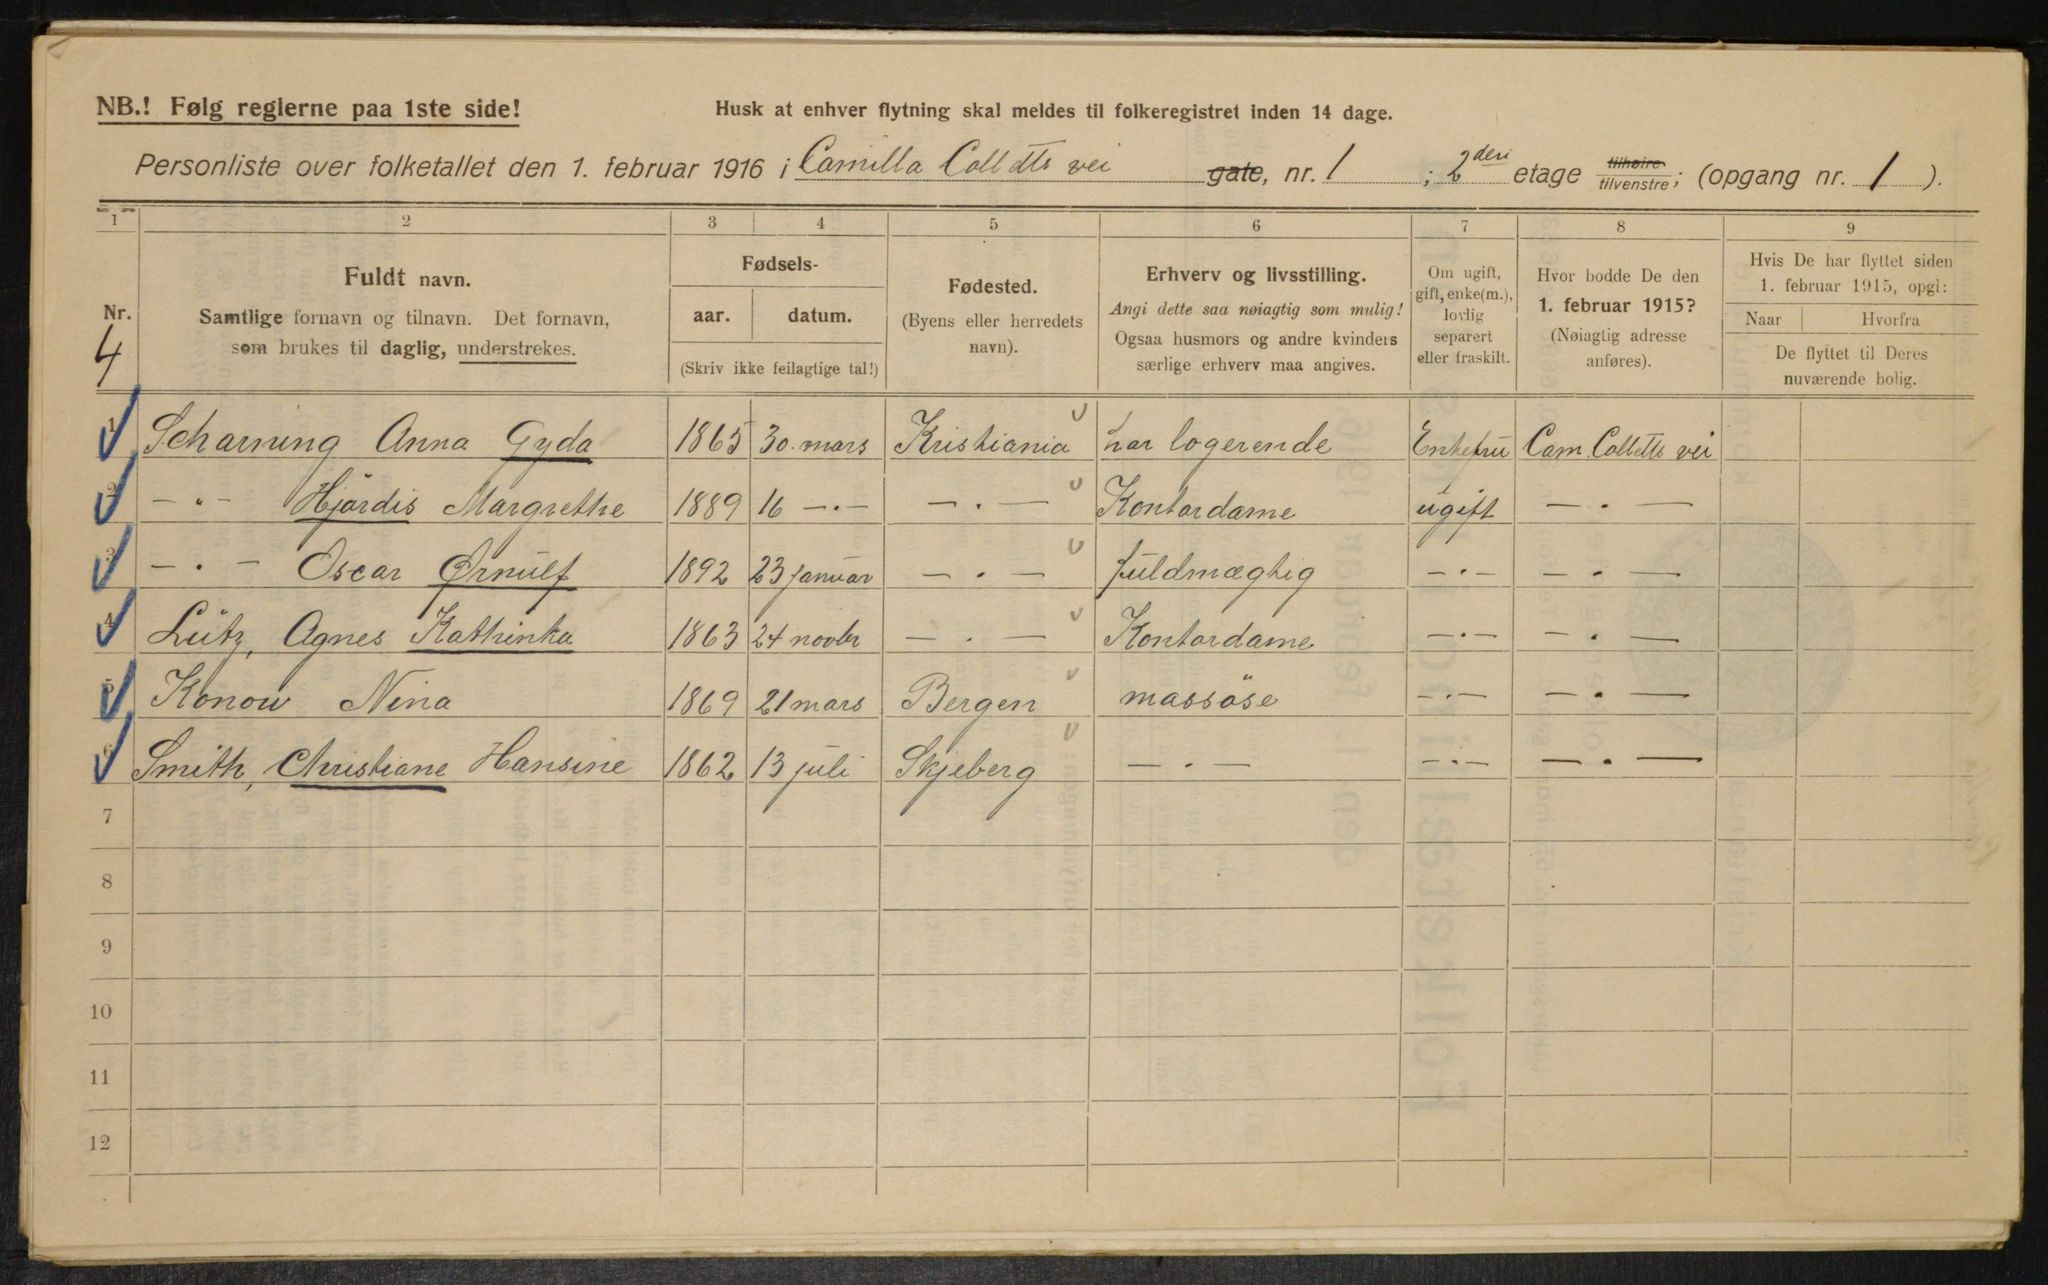 NB.! Følg reglerne paa 1ste side! Husk at enhver flytning skal meldes til folkeregistret inden 14 dage.
Personliste over folketallet den 1. februar 1916 i Camilla Colletts vei gate, nr. 1 ; 2den etage tilhøire tilvenstre; (opgang nr. 1 ).
1 2 3 4 5 6 7 8 9
Nr. 4
Fuldt navn.
Samtlige fornavn og tilnavn. Det fornavn,
som brukes til daglig, understrekes.
Fødsels-
aar. datum.
(Skriv ikke feilagtige tal!)
Fødested.
(Byens eller herredets
navn).
Erhverv og livsstilling.
Angi dette saa nøiagtig som mulig!
Ogsaa husmors og andre kvinders
særlige erhverv maa angives.
Om ugift,
gift, enke(m.),
lovlig
separert
eller fraskilt.
Hvor bodde De den
1. februar 1915?
(Nøiagtig adresse
anføres).
Hvis De har flyttet siden
1. februar 1915, opgi:
Naar Hvorfra
De flyttet til Deres
nuværende bolig.
1 Scharning Anna Gyda 1865 30. mars Kristiania har logerende Enkefru Cam. Colletts vei
2 — " — Hjördis Margrethe 1889 16 — . — — . — Kontordame ugift — . —
3 — . — Oscar Ørnulf 1892 23 januar — . — fuldmægtig — . — — . —
4 Lütz, Agnes Kathinka 1863 24 novbr — . — Kontordame — . — — . —
5 Konow Nina 1869 21 mars Bergen massöse — . — — . —
6 Smith, Christiane Hansine 1862 13 juli Skjeberg — . — — . — — . —
7
8
9
10
11
12